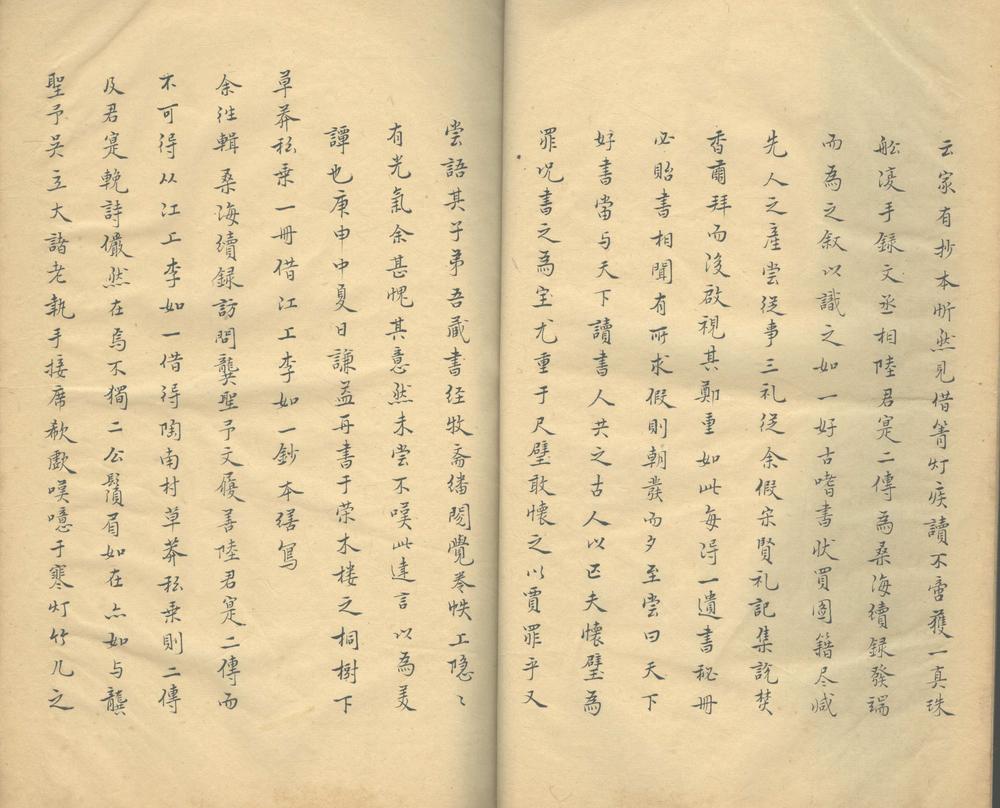 云家有抄本忻然見借篝灯疾讀不啻獲一真珠
船濅手録文丞相陸君寔二傳為桑海續録發端
而為之叙以識之如一好古嗜書状買圖籍尽减
先人之產嘗從事三礼從余假宋賢礼記集説焚
香肅拜而浚啟視其鄭重如此每淂一遺書秘冊
必貽書相聞有所求假則朝發而夕至嘗曰天下
好書當与天下讀書人共之古人以匹夫懷璧為
罪况書之為宝尤重于尺璧敢懷之以賈罪乎又
嘗語其子弟吾藏書経牧斋繙閲覺卷帙工隐〻
有光氣余甚愧其意然未尝不嘆此達言以為美
譚也庚申中夏日謙益再書于荣木楼之桐樹下
草莽私乗一冊借江工李如一鈔本繕寫
余徃輯桑海續録訪問龔聖予文履善陸君寔二傳而
不可得从江工李如一借得陶南村草莽私乗則二傳
及君寔輓詩儼然在焉不獨二公鬚眉如在亦如与龔
聖予吴立夫諸老執手接席欷歔嘆噫于寒灯竹几之